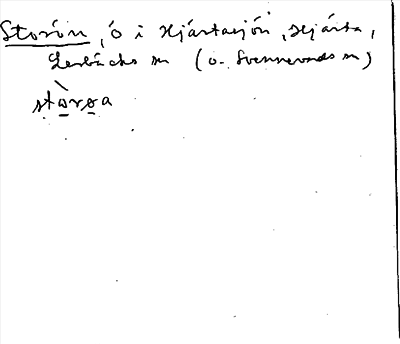 Storön, ö i Hjärtasjön, Hjärta,
Lerbäcks sn (o. Svennevads sn)
störøa